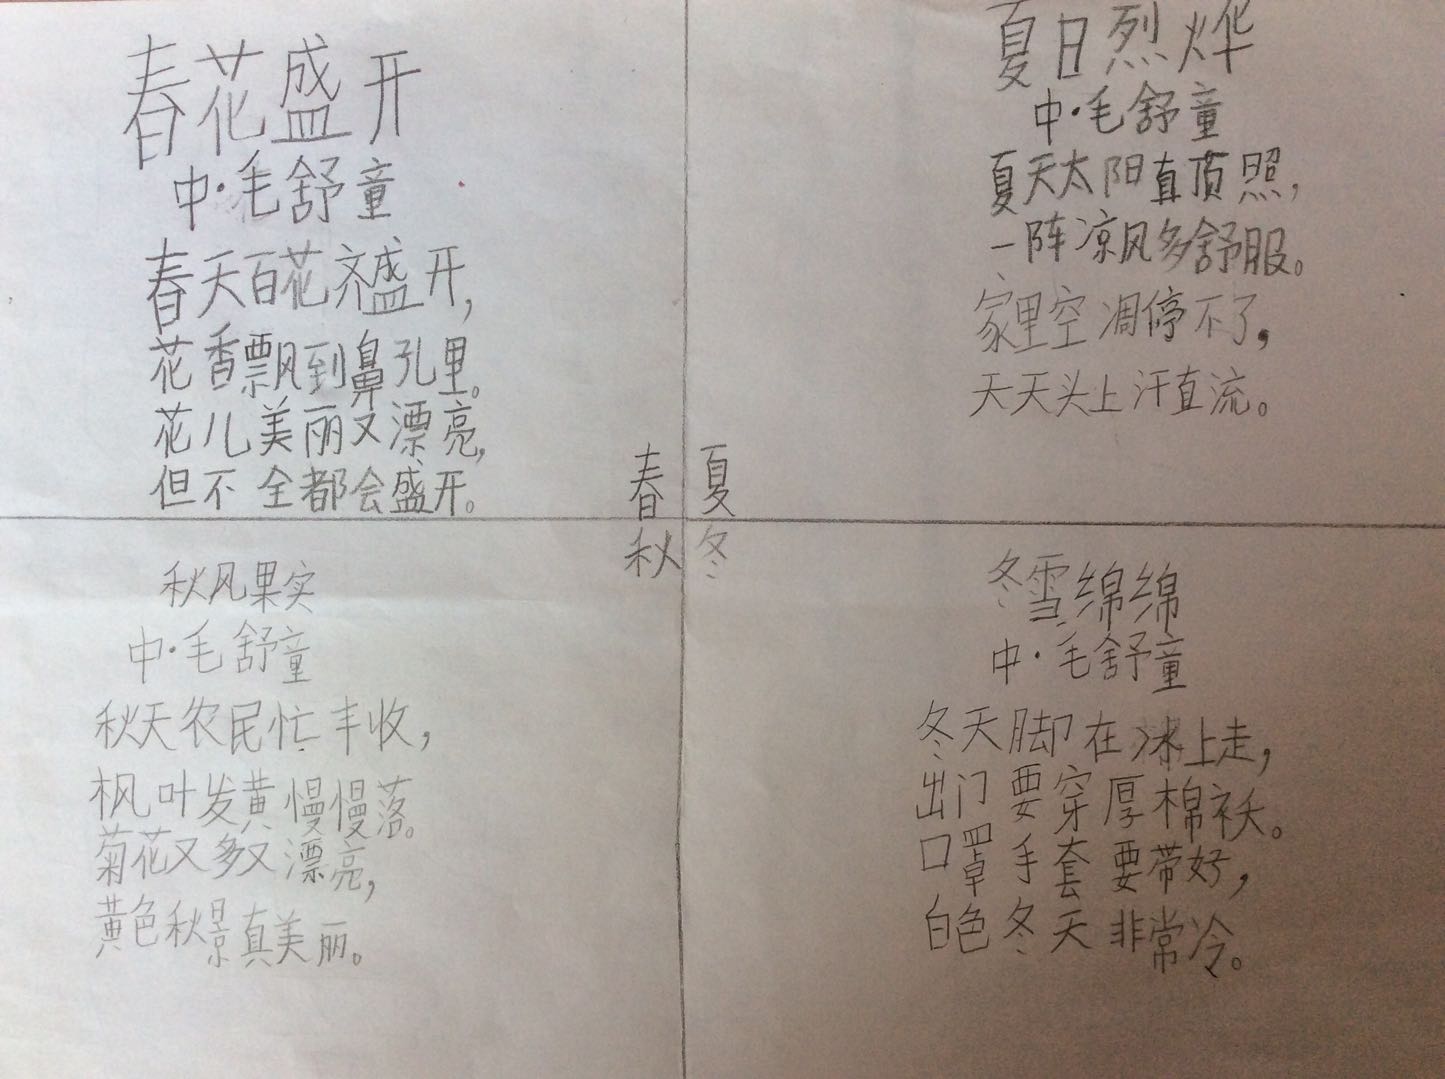 春花盛开
中·毛舒童
春天百花齐盛开,
花香飘到鼻孔里。
花儿美丽又漂亮,
但不全都会盛开。
夏日烈烨
中·毛舒童
夏天太阳直顶照,
一阵凉风多舒服。
家里空凋停不了,
天天头上汗直流。
春 夏
秋 冬
秋风果实
中·毛舒童
秋天农民忙丰收,
枫叶发黄慢慢落。
菊花又多又漂亮,
黄色秋景真美丽。
冬雪绵绵
中·毛舒童
冬天脚在冰上走,
出门要穿厚棉袄。
口罩手套要带好,
白色冬天非常冷。